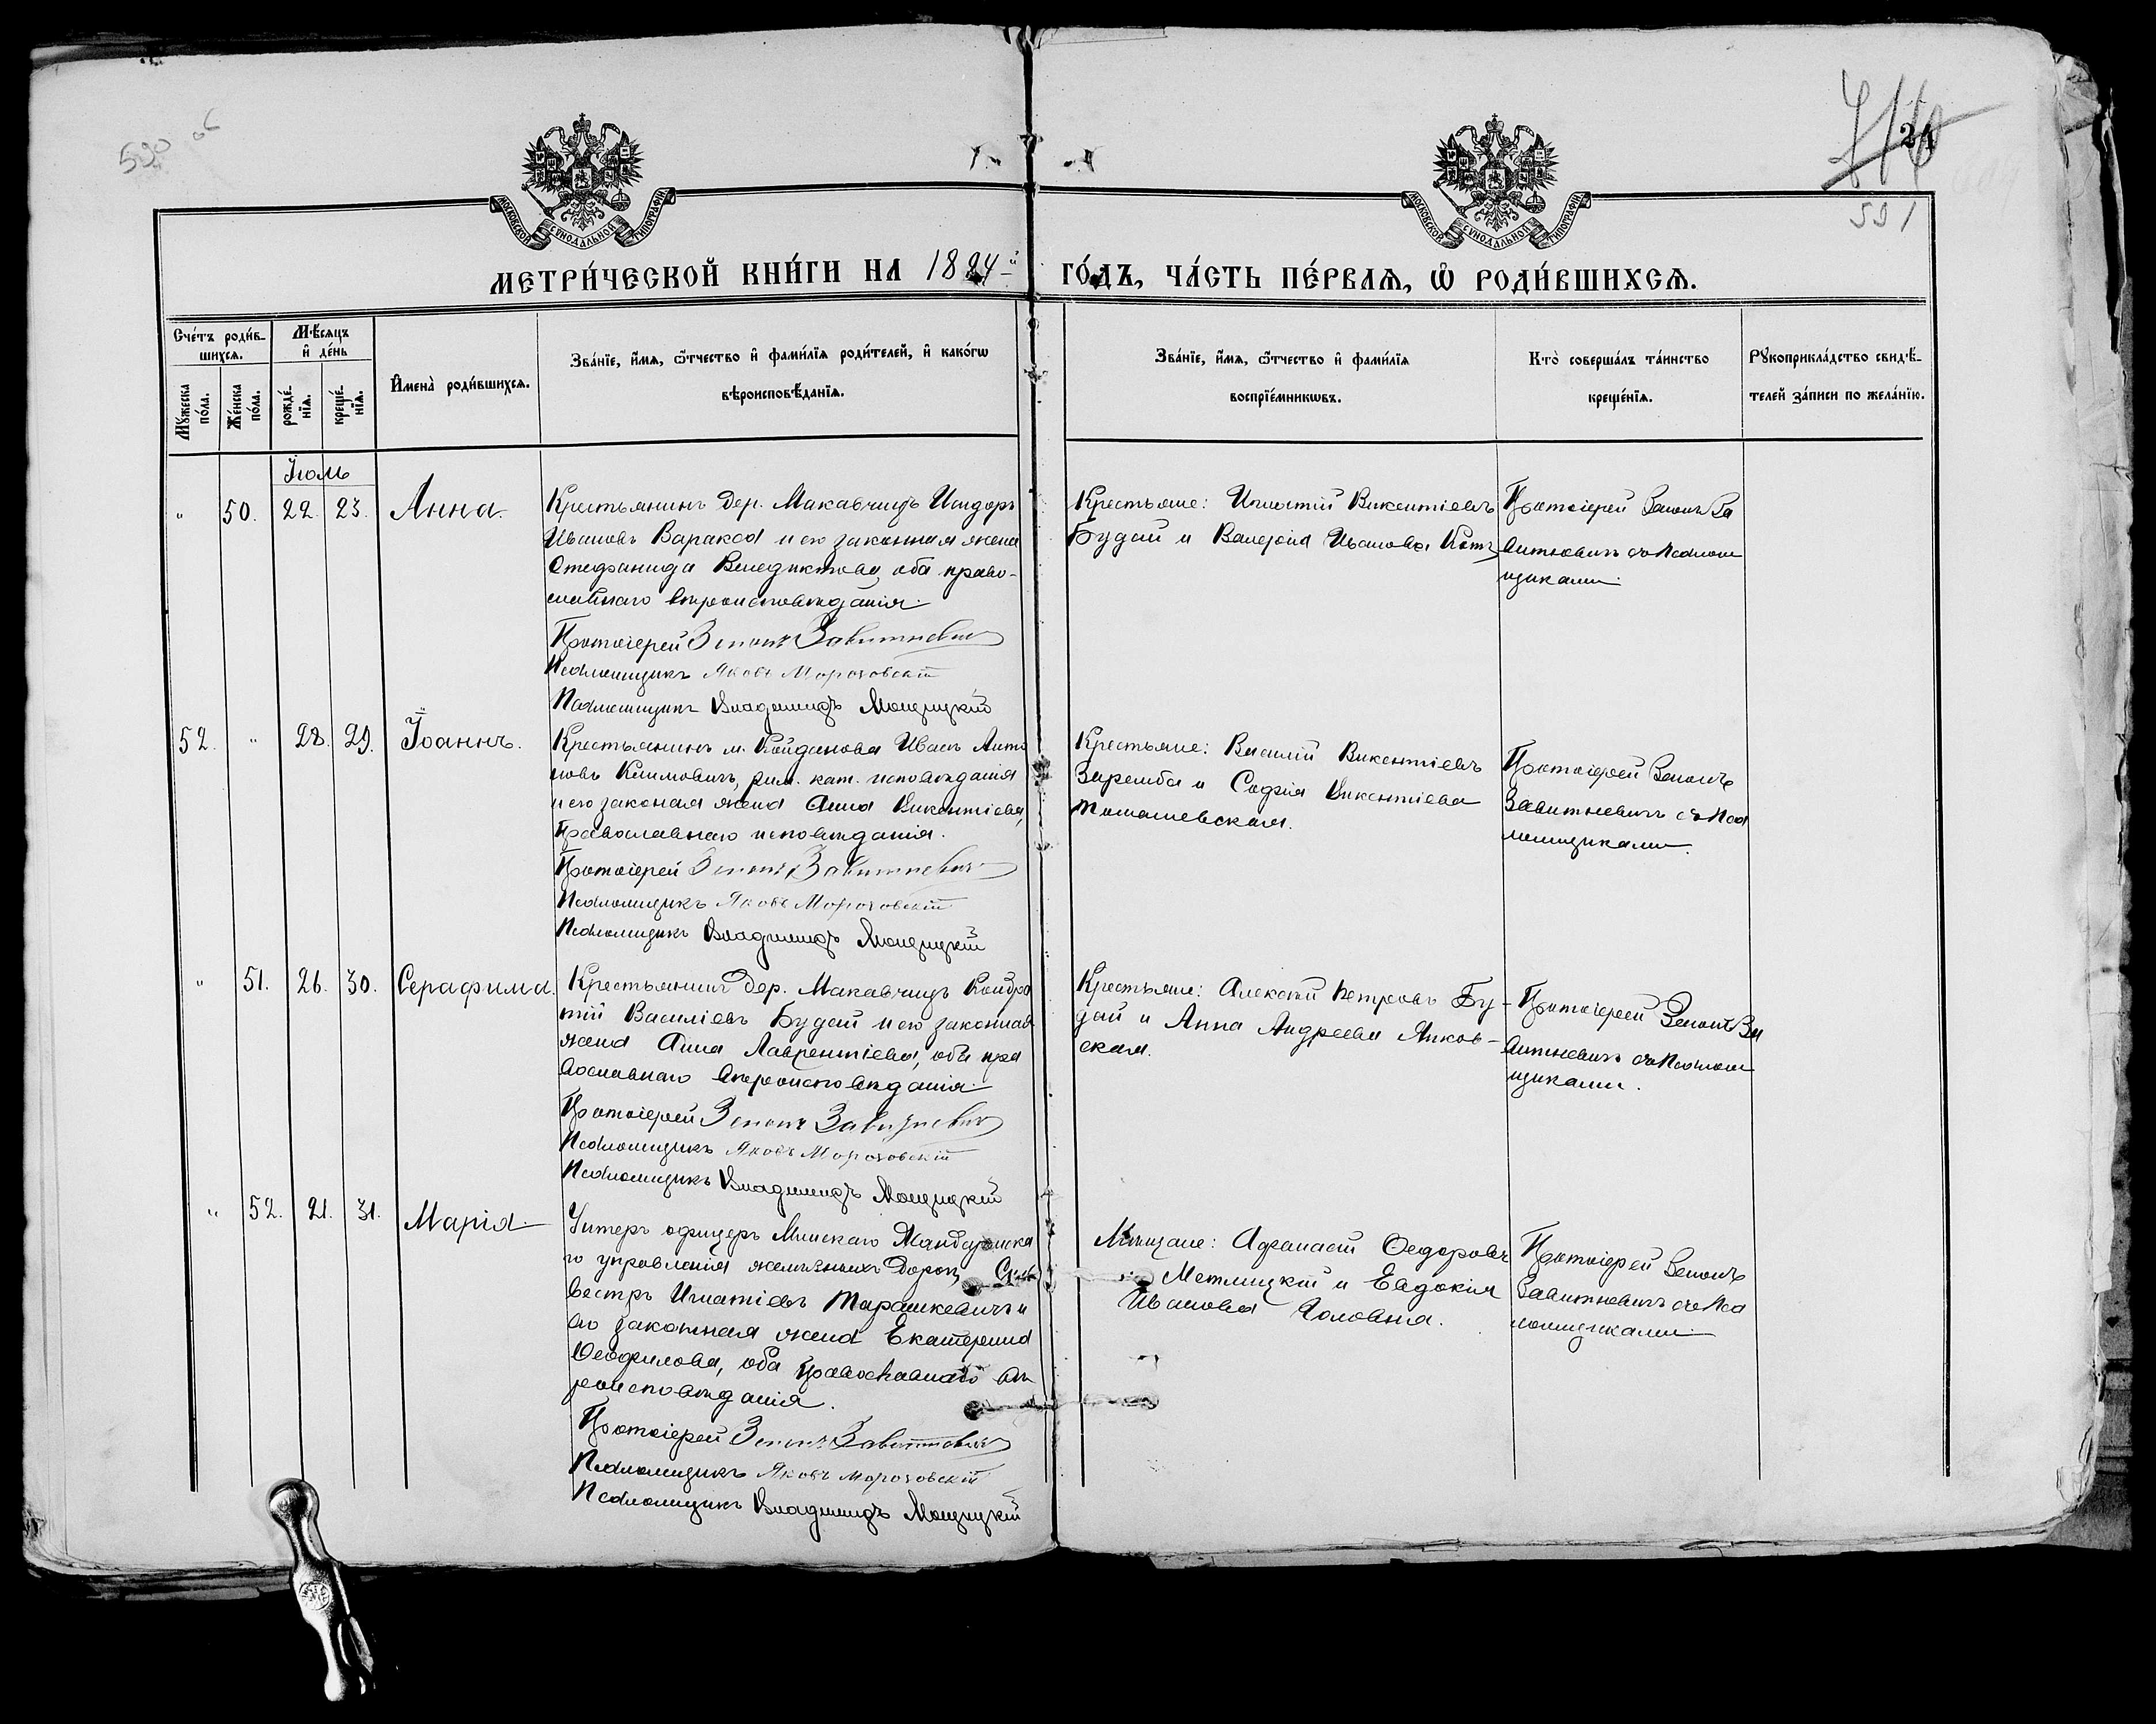 590 об
24
591
МОСКОВСКОЙ СѴНОДАЛЬНОЙ ТИПОГРАФІИ
МОСКОВСКОЙ СѴНОДАЛЬНОЙ ТИПОГРАФІИ
МЕТРИ́ЧЕСКОЙ КНИ́ГИ НА 1894-й ГО́ДЪ, ЧА́СТЬ ПЕ́РВАѦ, Ѡ҆ РОДИ́ВШИХСѦ.
Сче́тъ роди́в-
шихсѧ.
Мѣ́сяцъ
и҆ де́нь
Мꙋ́жеска
по́ла.
Же́нска
по́ла.
рожде́-
нїѧ.
креще́-
нїѧ.
И҆мена̀ роди́вшихсѧ.
Зва́нїе, и҆́мѧ, ѻ҆́тчество и҆ фами́лїѧ роди́телей, и҆ како́гѡ
вѣроисповѣ́данїѧ.
Зва́нїе, и҆́мѧ, ѻ҆́тчество и҆ фами́лїѧ
воспрїе́мникѡвъ.
Кто̀ соверша́лъ та́инство
креще́нїѧ.
Рꙋкоприкла́дство свидѣ́-
телей за́писи по жела́нїю.
Іюль
" 50. 22. 23. Анна.
Крестьянинъ дер. Макавчицъ Исидоръ
Ивановъ Варакса и его законная жена
Стефанида Венедиктова, оба право-
славнаго вѣроисповѣданія.
Протоіерей Зенонъ Завитневичъ
Псаломщикъ Яковъ Мороховскій
Псаломщикъ Владиміръ Мощицкій
Крестьяне: Игнатій Викентіевъ
Будай и Валерія Иванова
Протоіерей Зенонъ За
витневичъ съ псалом
щиками.
52. " 28. 29. Іоаннъ.
Крестьянинъ м. Койданова Иванъ Анто
новъ Климовичъ, рим. кат. исповѣданія
и его законная жена Анна Викентіева,
православнаго исповѣданія.
Протоіерей Зенонъ Завитневичъ
Псаломщикъ Яковъ Мороховскій
Псаломщикъ Владиміръ Мощицкій
Крестьяне: Василій Викентіевъ
Заремба и Софія Викентіева
Томашевская.
Протоіерей Зенонъ
Завитневичъ съ пса
ломщиками.
" 51. 26. 30. Серафима.
Крестьянинъ дер. Макавчицъ Кондра
тій Василіевъ Будай и его законная
жена Анна Лаврентіева, оба пра
вославнаго вѣроисповѣданія.
Протоіерей Зенонъ Завитневичъ
Псаломщикъ Яковъ Мороховскій
Псаломщикъ Владиміръ Мощицкій
Крестьяне: Алексѣй Петровъ Бу-
дай и Анна Андреева Янков-
ская.
Протоіерей Зенонъ За
витневичъ съ псалом
щиками.
" 52. 21. 31. Марія.
Унтеръ офицеръ Минскаго Жандармска
го управленія желѣзныхъ дорогъ Силь
вестръ Игнатіевъ Тарашкевичъ и
его законная жена Екатерина
Ѳеофилова, оба православнаго вѣ
роисповѣданія.
Протоіерей Зенонъ Завитневичъ
Псаломщикъ Яковъ Мороховскій
Псаломщикъ Владиміръ Мощицкій
Мѣщане: Афанасій Ѳедоровъ
Метлицкій и Евдокія
Иванова Головня.
Протоіерей Зенонъ
Завитневичъ съ пса
ломщиками.